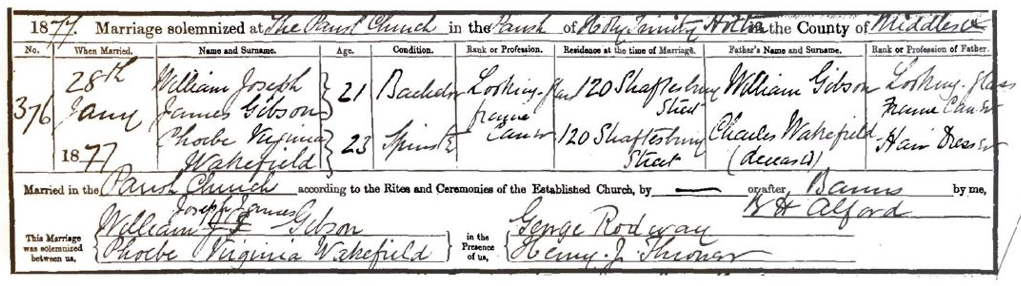 1877. Marriage solemnized at The Parish Church in the Parish of Holy Trinity Hoxton in the County of Middlesex
No. When Married. Name and Surname. Age. Condition. Rank or Profession. Residence at the time of Marriage. Father's Name and Surname. Rank or Profession of Father.
376 28th Jany 1877
William Joseph James Gibson 21 Bachelor Looking-glass frame Carver 120 Shaftesbury Street William Gibson Looking-glass Frame Carver
Phoebe Virginia Wakefield 23 Spinster 120 Shaftesbury Street Charles Wakefield (deceased) Hair Dresser
Married in the Parish Church according to the Rites and Ceremonies of the Established Church, by — or after Banns by me,
B H Alford
This Marriage was solemnized between us,
William Joseph James Gibson
Phoebe Virginia Wakefield
in the Presence of us,
George Rodway
Henry J